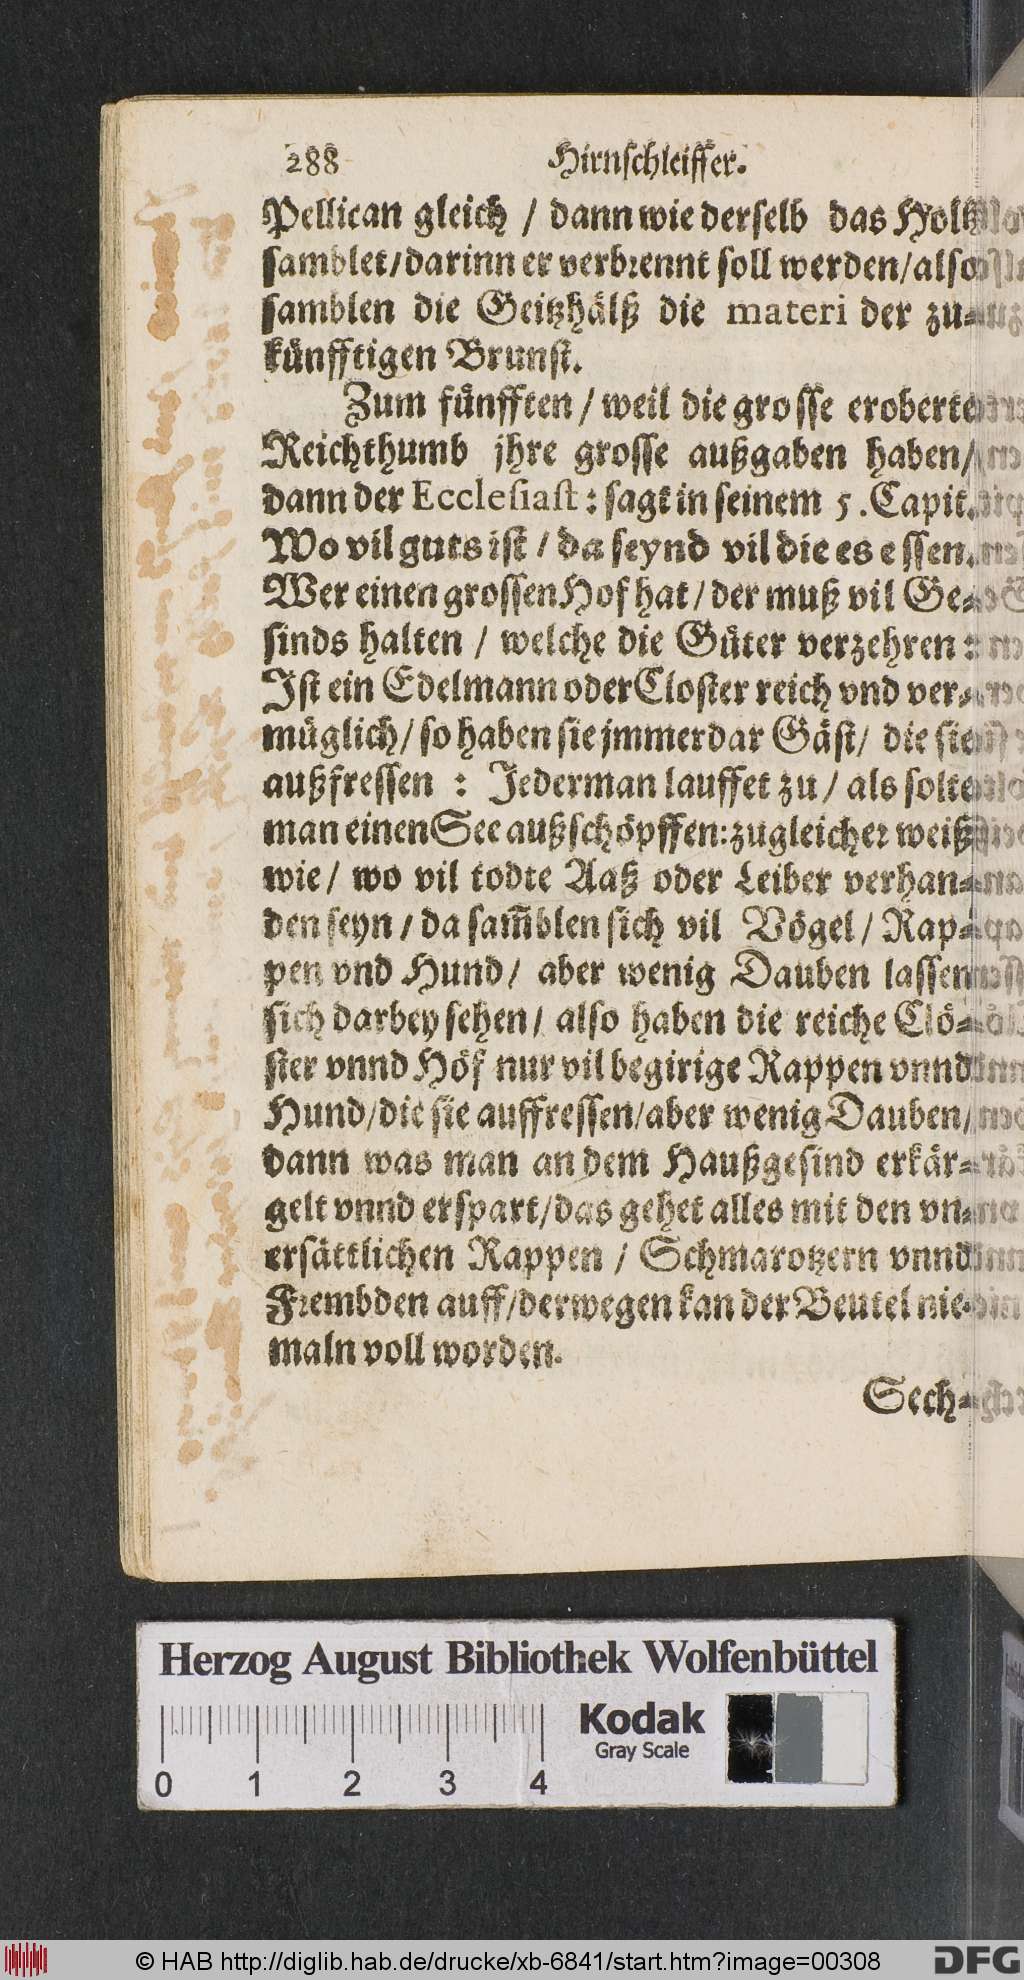 288 Hirnschleiffer.
Pellican gleich / dann wie derselb das Holtz
samblet/darinn er verbrennt soll werden/also
samblen die Geitzhälß die materi der zu-
künfftigen Brunst.
Zum fünfften / weil die grosse eroberte
Reichthumb jhre grosse außgaben haben/
dann der Ecclesiast: sagt in seinem 5. Capit.
Wo vil guts ist / da seynd vil die es essen.
Wer einen grossen Hof hat / der muß vil Ge-
sinds halten / welche die Güter verzehren:
Ist ein Edelmann oder Closter reich vnd ver-
müglich/ so haben sie jmmerdar Gäst/ die sie
außfressen : Jederman lauffet zu / als solte
man einen See außschöpffen: zugleicher weiß
wie / wo vil todte Aaß oder Leiber verhan-
den seyn / da sam̃blen sich vil Vögel / Rap-
pen vnd Hund/ aber wenig Dauben lassen
sich darbey sehen / also haben die reiche Clö-
ster vnnd Höf nur vil begirige Rappen vnnd
Hund/die sie auffressen/aber wenig Dauben/
dann was man an dem Haußgesind erkär-
gelt vnnd erspart/das gehet alles mit den vn-
ersättlichen Rappen / Schmarotzern vnnd
Frembden auff/derwegen kan der Beutel nie-
maln voll worden.
Sech-
Herzog August Bibliothek Wolfenbüttel
Kodak
Gray Scale
0 1 2 3 4
© HAB http://diglib.hab.de/drucke/xb-6841/start.htm?image=00308
DFG